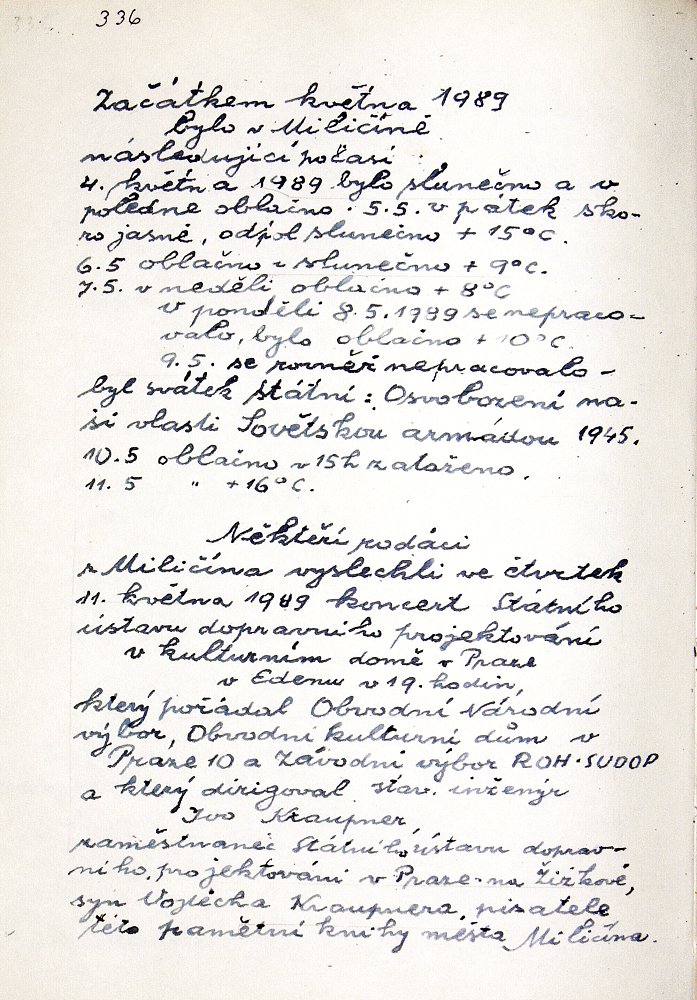 336
Začátkem května 1989
bylo v Miličíně
následující počasí :
4. května 1989 bylo slunečno a v
poledne oblačno. 5.5. v pátek sko-
ro jasně, odpol slunečno + 15°C.
6.5 oblačno i slunečno + 9°C.
7.5. v neděli oblačno + 8°C
v pondělí 8.5.1989 se nepraco-
valo, bylo oblačno + 10°C.
9.5. se rovněž nepracovalo -
byl svátek státní: Osvobození na-
ší vlasti Sovětskou armádou 1945.
10.5 oblačno v 15h zataženo.
11.5 " +16°C.
Někteří rodáci
z Miličína vyslechli ve čtvrtek
11. května 1989 koncert Státního
ústavu dopravního projektování
v kulturním domě v Praze
v Edenu v 19. hodin,
který pořádal Obvodní Národní
výbor, Obvodní kulturní dům v
Praze 10 a Závodní výbor ROH-SUDOP
a který dirigoval stav. inženýr
Ivo Kraupner,
zaměstnanec Státního ústavu doprav-
ního projektování v Praze na Žižkově,
syn Vojtěcha Kraupnera, pisatele
této pamětní knihy města Miličína.